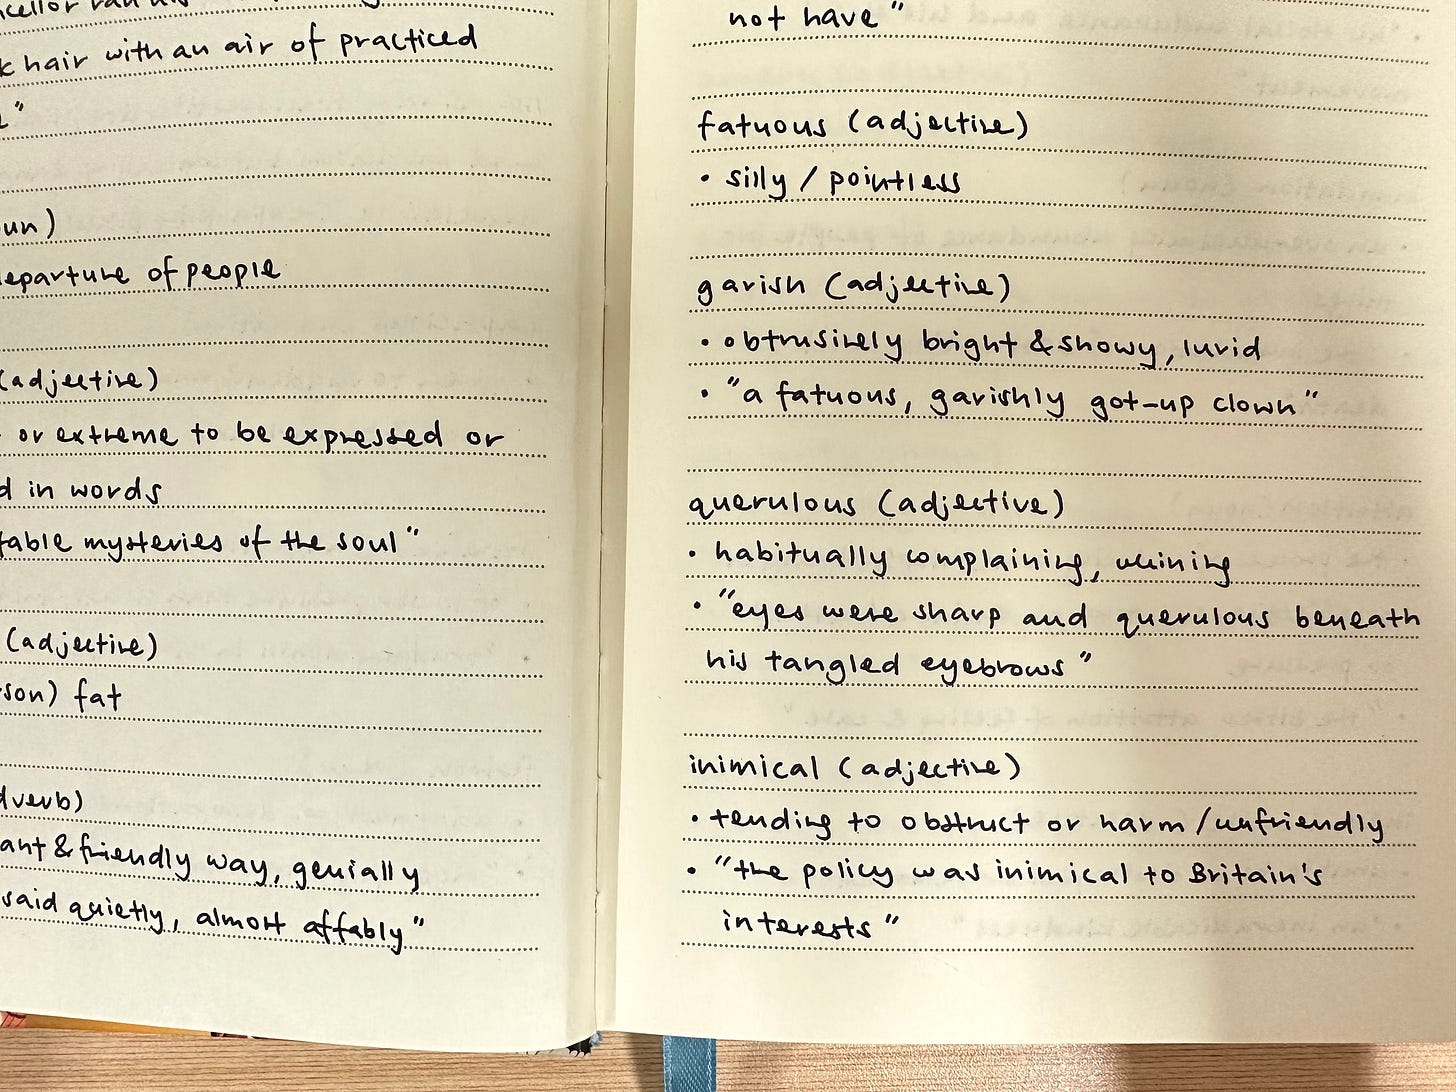 hair with an air of practiced
"
departure of people
(adjective)
or extreme to be expressed or
in words
mysteries of the soul"
(adjective)
fat
& friendly way, genially
said quietly, almost affably"
not have"
fatuous (adjective)
• silly / pointless
garish (adjective)
• obtrusively bright & showy, lurid
• "a fatuous, garishly got-up clown"
querulous (adjective)
• habitually complaining, whining
• "eyes were sharp and querulous beneath
his tangled eyebrows"
inimical (adjective)
• tending to obstruct or harm / unfriendly
• "the policy was inimical to Britain's
interests"